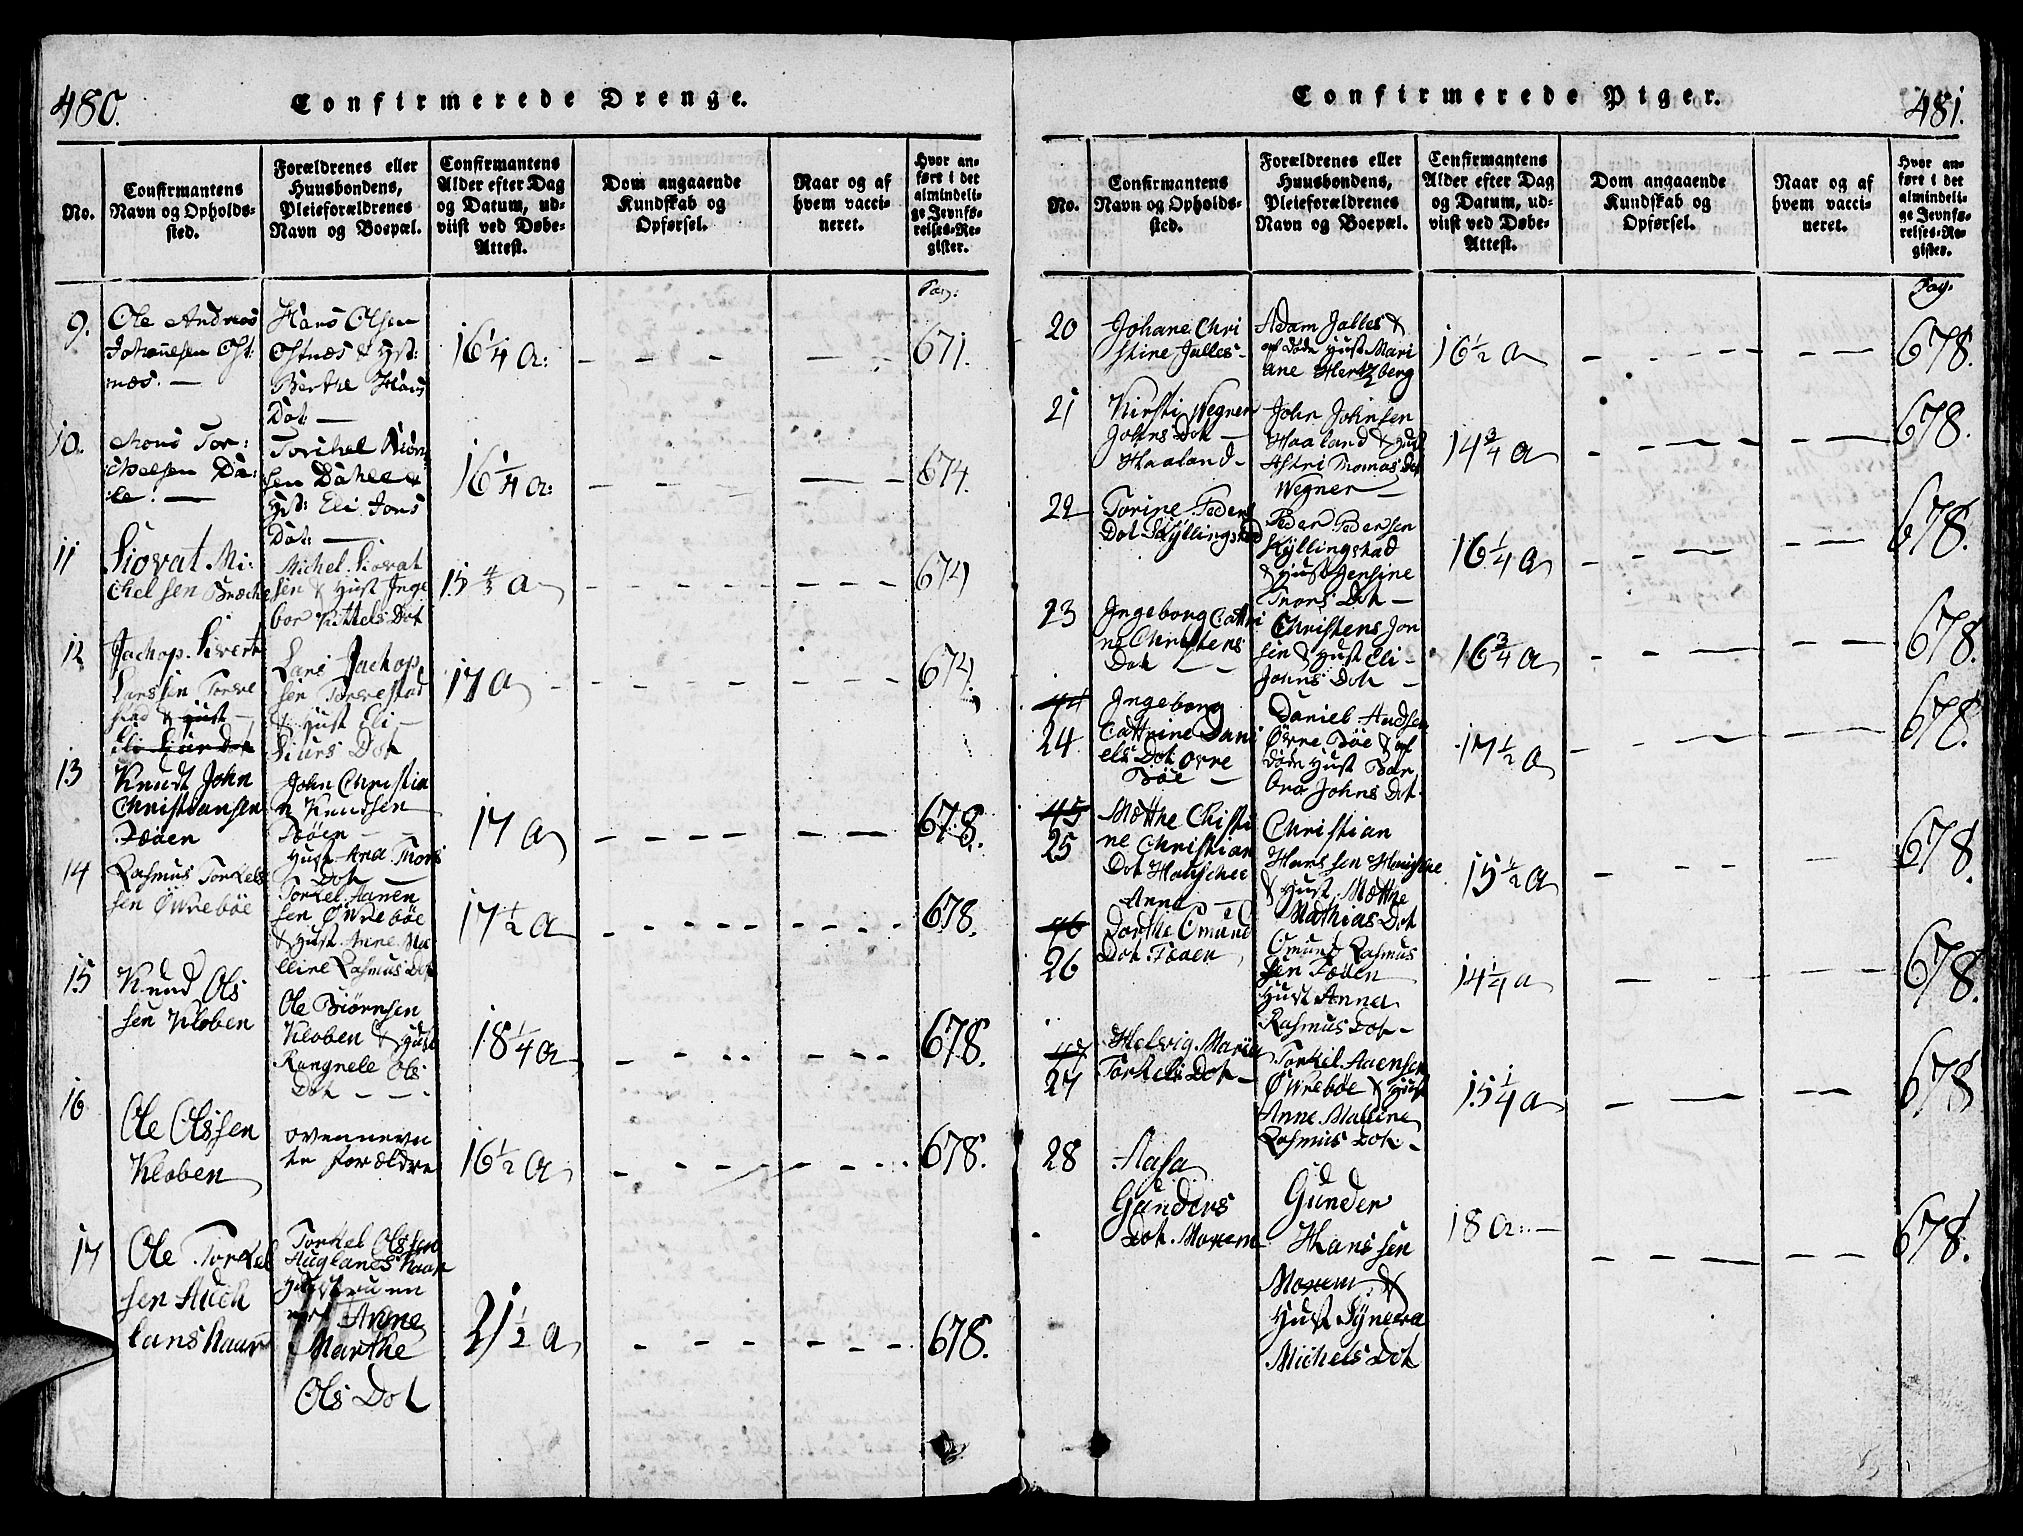 480.
Confirmerede Drenge.
No.
Confirmantens
Navn og Opholds-
sted.
Forældrenes eller
Huusbondens,
Pleieforældrenes
Navn og Boepæl.
Confirmantens
Alder efter Dag
og Datum, ud-
viist ved Døbe-
Attest.
Dom angaaende
Kundskab og
Opførsel.
Naar og af
hvem vacci-
neret.
Hvor an-
ført i det
almindeli-
ge Jevnfø-
relses-Re-
gister.
Pag:
9.
Ole Andreas
Johannesen Ost:
næs. —
Hans Olsen
Ostnæs & Hst:
Berthe Hans
Dot —
16 1/4 a:
671.
10.
Mons Tor:
chelsen Da:
le. —
Torchel Biørn
sen Dahle &
Hst: Eli Jons
Dot: —
16 1/4 a:
674.
11
Siovat Mi:
chelsen Bræche
Michel Siovat
sen & Hust Inge
bor Kittels Dot
15 3/4 a
674
12
Jachop Sivert
Larssen Torve
stad & Hust —
Eli Siur Dot
Lars Jachop
sen Torvestad
& Hust Eli —
Siurs Dot
17 a
674.
13
Knudt John
Christiansen
Fæøen
John Christia
n Knudsen
Fæøen — —
Hust Ana Thors
Dot —
17 a
678.
14
Rasmus Torkels
sen Øvrebøe
Torkel Aanen
sen Øvrebøe
& Hust Anne Ma
lline Rasmus Dot
17 1/2 a
678.
15
Knud Ols
sen Kloben
Ole Biørnsen
Kloben & Hust
Rangnele Ols
Dot — — -
18 1/4 a
678.
16
Ole Olssen
Kloben
ovennevn
te forældre
16 1/2 a
678.
17
Ole Torkel
sen Auch
lansKaar
Torkel Olssen
HuglansKaar
Hustru en
Anne
Marthe
Ols Dot
21 1/2 a
678.
Confirmerede Piger.
481.
No.
Confirmantens
Navn og Opholds-
sted.
Forældrenes eller
Huusbondens,
Pleieforældrenes
Navn og Boepæl.
Confirmantens
Alder efter Dag
og Datum, ud-
viist ved Døbe-
Attest.
Dom angaaende
Kundskab og
Opførsel.
Naar og af
hvem vacci-
neret.
Hvor an-
ført i det
almindeli-
ge Jevnfø-
relses-Re-
gister.
Pag.
20
Johane Chri
stine Jalles-
Adam Jalles &
af Døde Hust Mari
ane Hertzberg
16 1/2 a
678.
21
Kirsti Wegner
Johns Dot —
Haaland -
John Johnsen
Haaland & Hust
Astri Thomas Dot
Wegner —
14 3/4 a
678.
22
Torine Peders
Dot Kyllingstad
Peder Pedersen
Kyllingstad
& Hust Jensine
Thors Dot —
16 1/4 a
678.
23
Ingeborg Cathri
ne Christens
Dot — —
Christens Jon
sen & Hust Eli -
Johns Dot —
16 3/4 a
678.
44
24
Ingeborg
Cathrine Dani
els Dot Øvre
Bøe —
Daniel Audsen
Øvre Bøe & af
døde Hust Bar
bro Johns Dot
17 1/2 a
678.
45
25
Mætthe Christi
ne Christian
Dot Hauschee
Christian
Hanssen Hauschee
& Hust Mætthe
Mathias Dot
15 1/2 a
678
46
26
Anna —
Dorthe Omund
Dot Fæøen
Omund Rasmus
sen Fæøen
Hust Anna
Rasmus Dot -
14 1/4 a
678.
47
27
Helvig Maria
Torkels Dot -
Torkel Aaensen
Øvrebøe & Hust
Anne Malline
Rasmus Dot -
15 1/4 a
678
28
Aasa
Gunders
Dot Moxem
Gunder
Hanssen
Moxem &
Hust Synneva
Michels Dot
18 a: —
678.